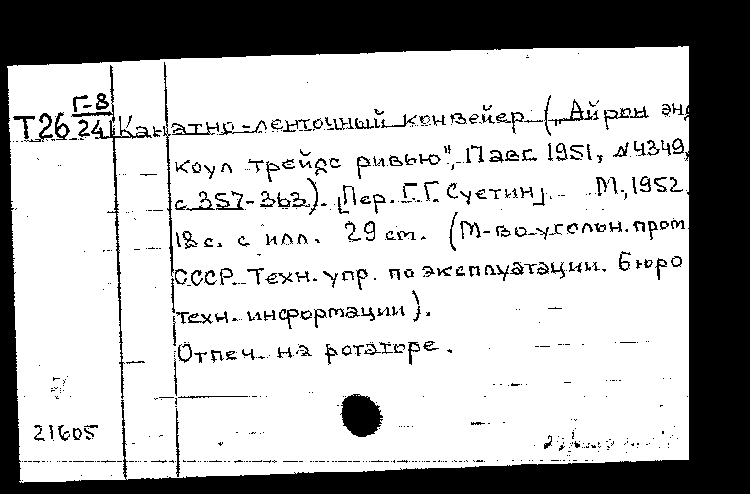 Г-8
Т26 24 Канатно-ленточный конвейер („Айрон энд
коул трейдс ривью", Павг. 1951, N4349,
с 357-363). [Пер. Г.Г. Суетин]. М., 1952.
18 с. с илл. 29 см. (М-во угольн. пром.
СССР. Техн. упр. по эксплуатации. Бюро
техн. информации).
Отпеч. на ротаторе.
21605